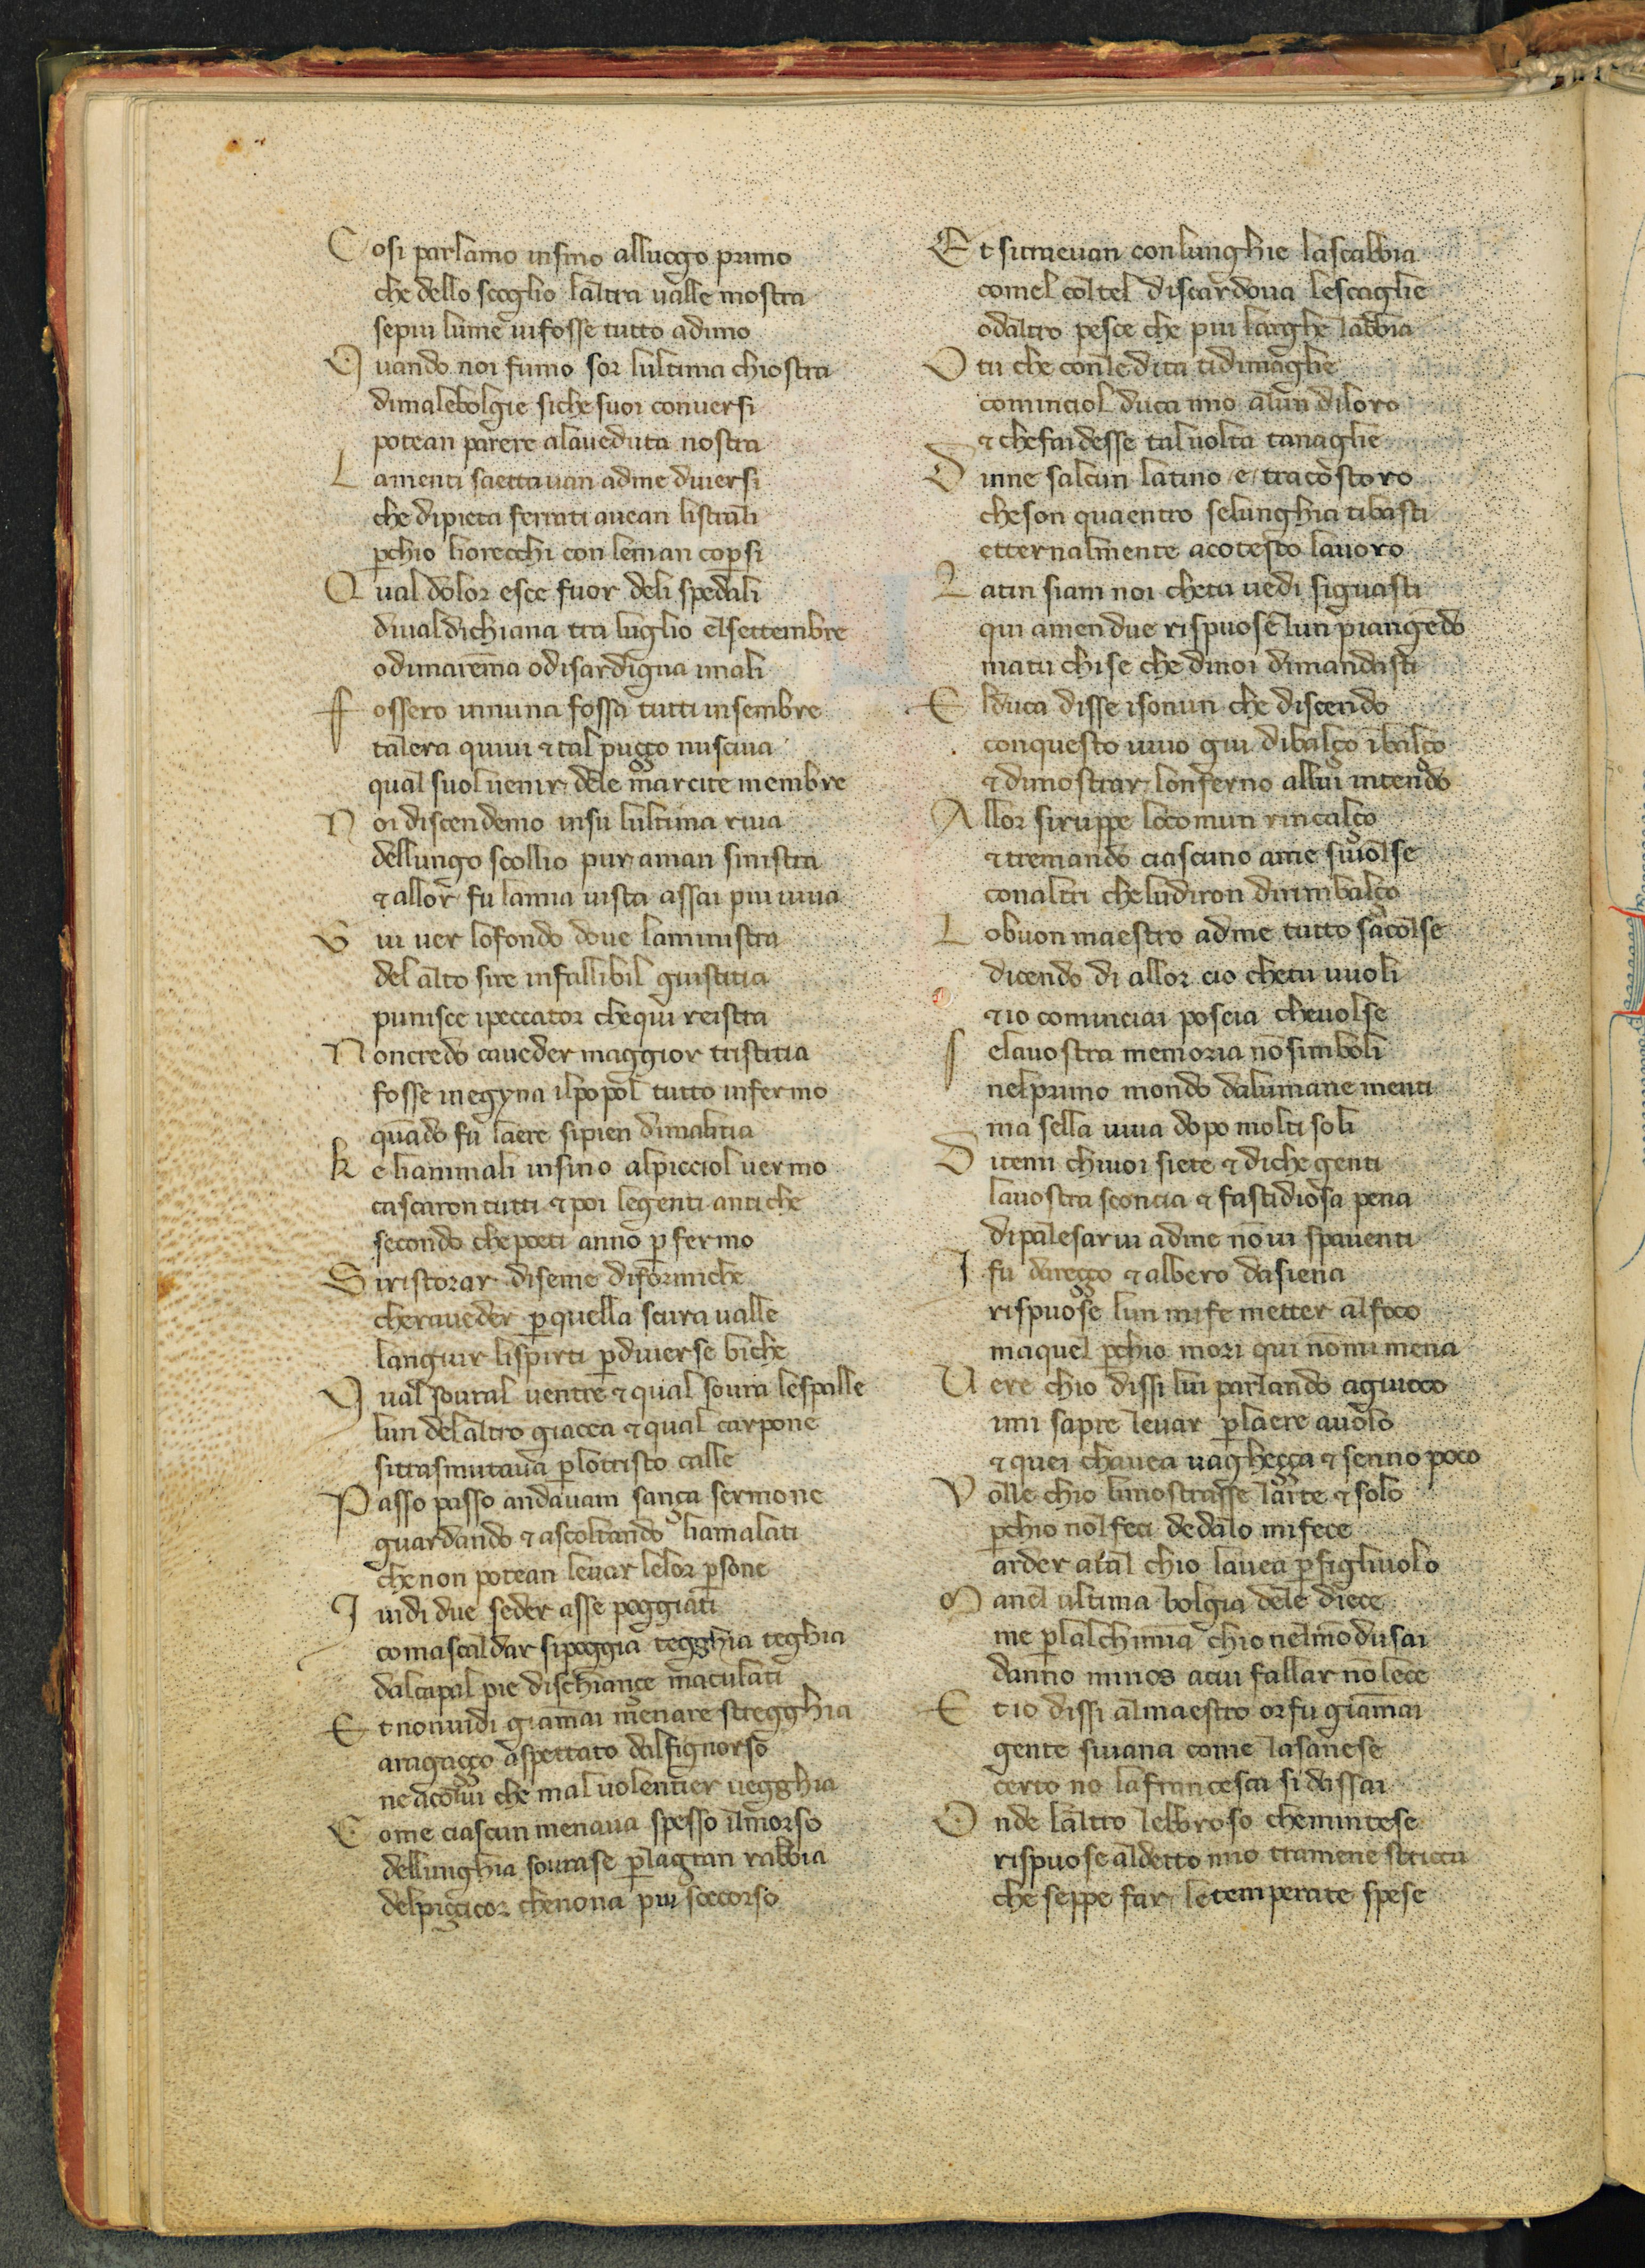 Cosi parlamo insino alluogo primo
che dello scoglio laltra ualle mostra
sepiu lume uifosse tutto adimo
Quando noi fumo sor lultima chiostra
dimalebolgie siche suoi conuersi
potean parere alaueduta nostra
Lamenti saettauan adme diuersi
che dipieta ferrati auean listrali
p̱chio liorecchi con leman cop̱si
Qual dolor esce fuor deli spedali
diualdichiana tra luglio elsettembre
odimarem̄a odisardigna imali
Fossero inuna fossa tutti insembre
talera quiui ⁊ tal puçço nusciua
qual suol uenir dele marcite membre
Noi discendemo insu lultima riua
dellungo scollio pur aman sinistra
⁊ allor fu lamia uista assai piu uiua
Giu uer lofondo doue laministra
del alto sire infallibil giustitia
punisce ipeccator chequi reistra
Noncredo caueder maggior tristitia
fosse inegyna ilpopol tutto infermo
quādo fu laere sipien dimalitia
Ke lianimali insino alpicciol uermo
cascaron tutti ⁊ poi legenti antiche
secondo chepoeti anno p̱ fermo
Siristorar diseme diformiche
cheraueder p̱ quella scura ualle
languir lispirti p̱ diuerse biche
Qual soural uentre ⁊ qual soura lespalle
lun delaltro giacea ⁊ qual carpone
sitrasmutaua p̱ lotristo calle
Passo passo andauam sança sermone
guardando ⁊ ascoltando liamalati
chenon potean leuar lelor p̱sone
I uidi due seder asse poggiati
comascaldar sipoggia tegghia teghia
dalcapal pie dischiançe maculati
Et nonuidi giamai menare stregghia
aragaçço aspettato dalsignorso
ne acolui che mal uolentier uegghia
Come ciascun menaua spesso ilmorso
dellunghia sourase p̱ lagran rabbia
delpiççicor chenona piu soccorso
Et sitraeuan conlunghie lascabbia
comel coltel discardoua lescaglie
odaltro pesce che piu larghe labbia
O tu che conledita tidimaglie
cominciol duca mio alun diloro
⁊ chefaidesse taluolta tanaglie
Dinne salcun latino e tracostoro
cheson quaentro selunghia tibasti
etternalmente acotesto lauoro
Latin siam noi chetu uedi siguasti
qui amendue rispuose lun piangēdo
matu chise che dinoi dimandasti
Elduca disse isonun che discendo
conquesto uiuo giu dibalço ībalço
⁊ dimostrar lonferno allui intendo
Allor siruppe locomun rincalço
⁊ tremando ciascuno ame siuolse
conaltri cheludiron dirimbalço
Lobuon maestro adme tutto sacolse
dicendo di allor cio chetu uuoli
⁊ io cominciai poscia cheuolse
Selauostra memoria nō simboli
nelprimo mondo dalumane menti
ma sella uiua dopo molti soli
Ditemi chiuoi siete ⁊ diche genti
lauostra sconcia ⁊ fastidiosa pena
dipalesarui adme nō ui spauenti
I fu dareçço ⁊ albero dasiena
rispuose lun mife metter alfoco
maquel p̱chio mori qui nōmi mena
Uere chio dissi lui parlando agiuoco
imi sapre leuar p̱ laere auolo
⁊ quei chauea uagheçça ⁊ senno poco
Volle chio limostrasse larte ⁊ solo
p̱chio nōl feci dedalo mi fece
arder atal chio lauea p̱ figliuolo
Manel ultima bolgia dele diece
me p̱ lalchimia chio nelmōdusai
danno minos acui fallar nō lece
Et io dissi almaestro or fu giamai
gente siuana come lasanese
certo no lafrancesca si dassai
Onde laltro lebbroso chemintese
rispuose aldetto mio tramene stricca
che seppe far letemperate spese